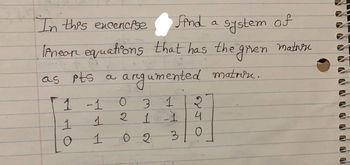 In this excencise find a system of
linear equations that has the given matrix
as its a argumented matrix.
1 -1 0 3 1 | 2
1 1 2 1 -1 | 4
0 1 0 2 3 | 0